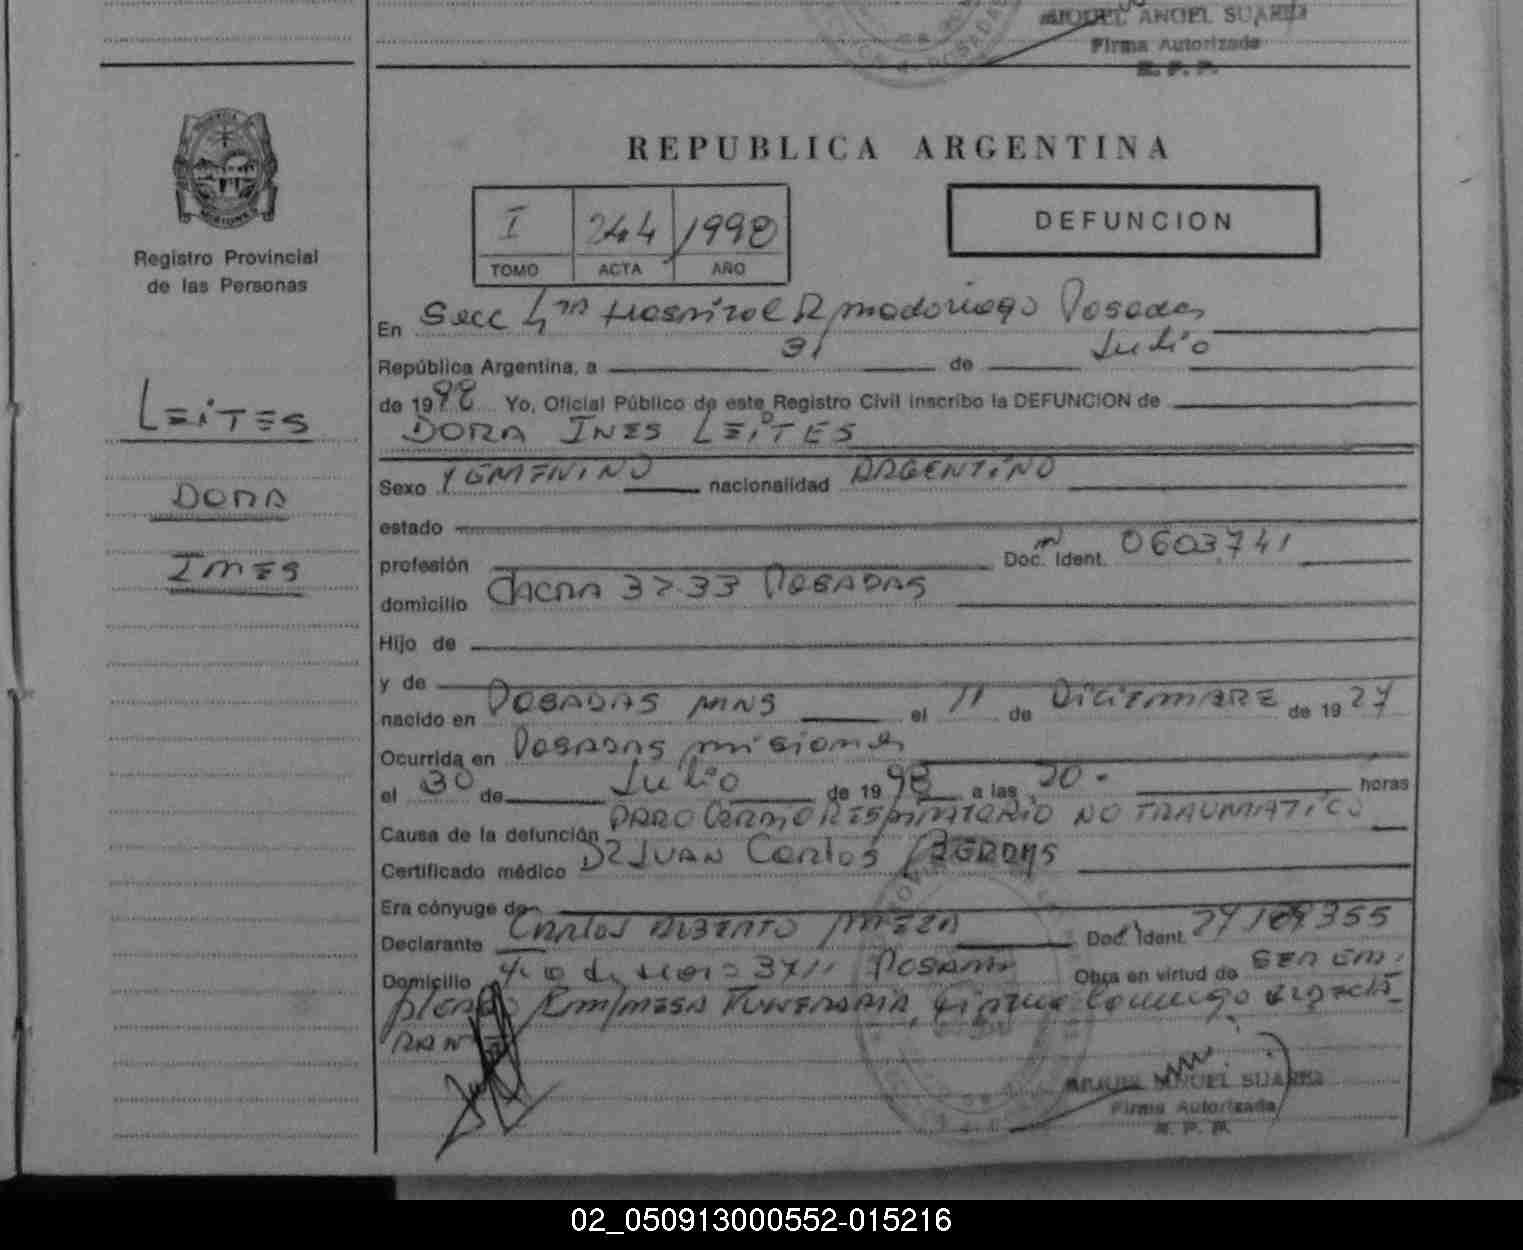 MIGUEL ANGEL SUAREZ
Firma Autorizada
R. P. P.
REPUBLICA ARGENTINA
I 244 1998
TOMO ACTA AÑO
DEFUNCION
MISIONES
Registro Provincial
de las Personas
LEiTES
DORA
INES
En Secc 4ta Hospital R Madariaga Posadas
República Argentina, a 31 de Julio
de 1998 Yo, Oficial Público de este Registro Civil inscribo la DEFUNCION de
DORA INES LEiTES
Sexo FEMENINO nacionalidad ARGENTINO
estado
profesión Doc. Ident. 0603.741
domicilio CHCRA 32.33 POSADAS
Hijo de
y de
nacido en POSADAS MNS el 11 de DiCiEMBRE de 1927
Ocurrida en POSADAS misiones
el 30 de Julio de 1998 a las 20. horas
Causa de la defunción PARO CARDIORESPIRATORIO NO TRAUMATICO
Certificado médico Dr JUAN Carlos
Era cónyuge de
Declarante CARLOS ALBERTO MEZA Doc. Ident.
Domicilio POSADAS Obra en virtud de SER EM-
pleado EMPRESA FUNERARIA, firma conmigo
MIGUEL ANGEL SUAREZ
Firma Autorizada
R. P. P.
02_050913000552-015216